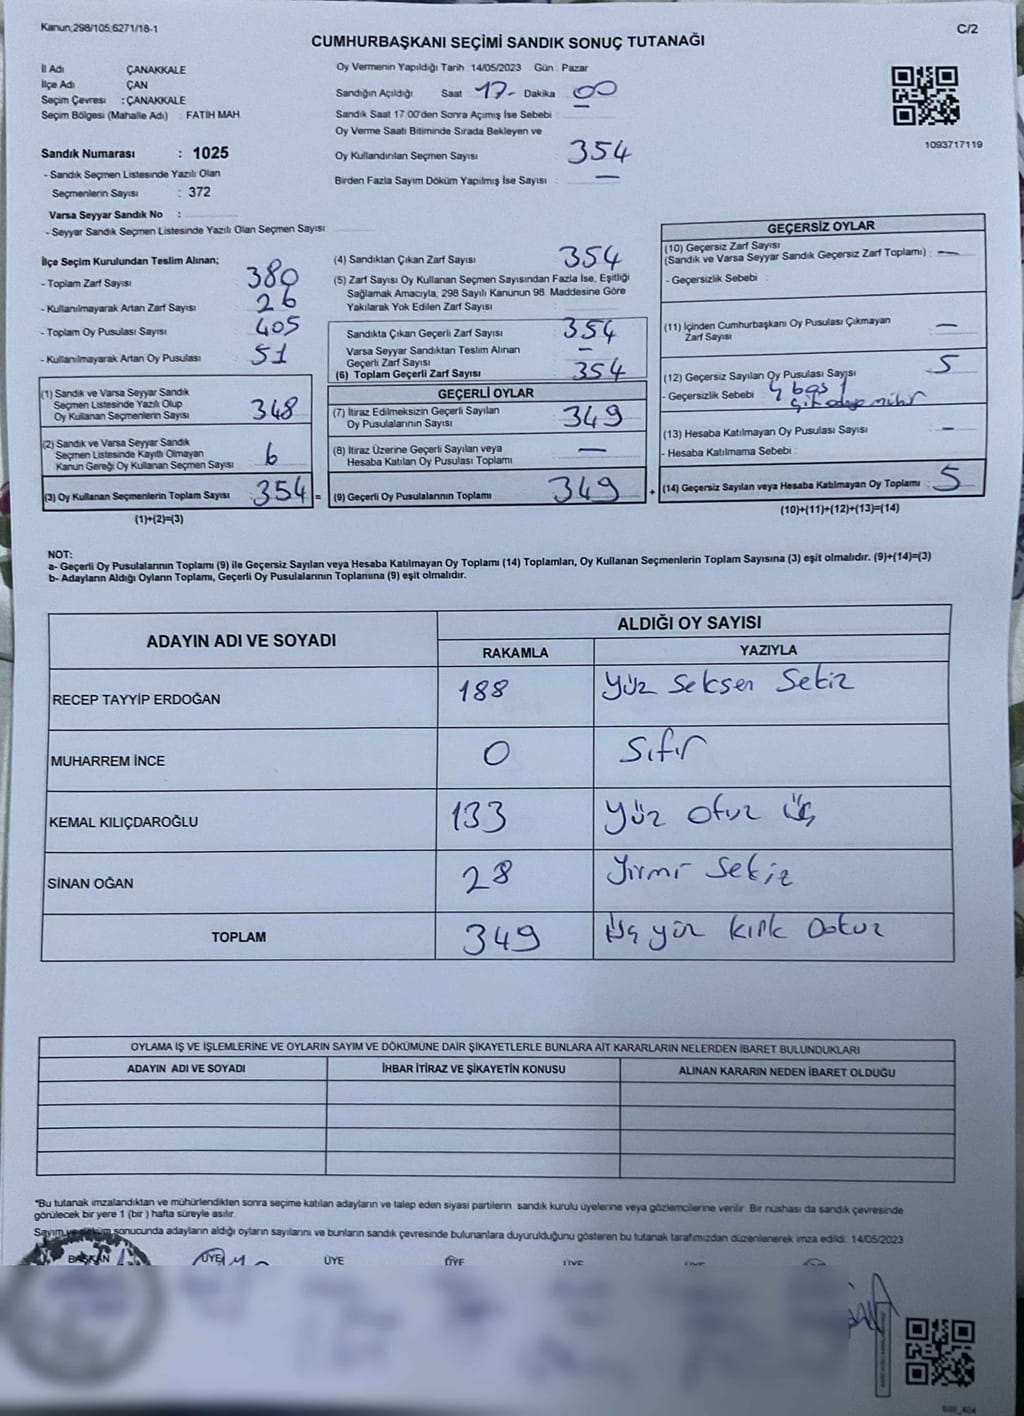 Kanun,298/105;6271/18-1
C/2
CUMHURBAŞKANI SEÇİMİ SANDIK SONUÇ TUTANAĞI
İl Adı ÇANAKKALE
İlçe Adı ÇAN
Seçim Çevresi : ÇANAKKALE
Seçim Bölgesi (Mahalle Adı) : FATİH MAH
Sandık Numarası : 1025
- Sandık Seçmen Listesinde Yazılı Olan
Seçmenlerin Sayısı : 372
Varsa Seyyar Sandık No :
- Seyyar Sandık Seçmen Listesinde Yazılı Olan Seçmen Sayısı
Oy Vermenin Yapıldığı Tarih : 14/05/2023 Gün : Pazar
Sandığın Açıldığı Saat 17- Dakika 00
Sandık Saat 17:00'den Sonra Açılmış İse Sebebi :
Oy Verme Saati Bitiminde Sırada Bekleyen ve
Oy Kullandırılan Seçmen Sayısı 354
Birden Fazla Sayım Döküm Yapılmış İse Sayısı : —
1093717119
İlçe Seçim Kurulundan Teslim Alınan;
- Toplam Zarf Sayısı 380
- Kullanılmayarak Artan Zarf Sayısı 26
- Toplam Oy Pusulası Sayısı 405
- Kullanılmayarak Artan Oy Pusulası 51
(1) Sandık ve Varsa Seyyar Sandık
Seçmen Listesinde Yazılı Olup
Oy Kullanan Seçmenlerin Sayısı 348
(2) Sandık ve Varsa Seyyar Sandık
Seçmen Listesinde Kayıtlı Olmayan
Kanun Gereği Oy Kullanan Seçmen Sayısı 6
(3) Oy Kullanan Seçmenlerin Toplam Sayısı 354 =
(1)+(2)=(3)
(4) Sandıktan Çıkan Zarf Sayısı 354
(5) Zarf Sayısı Oy Kullanan Seçmen Sayısından Fazla İse, Eşitliği
Sağlamak Amacıyla, 298 Sayılı Kanunun 98. Maddesine Göre
Yakılarak Yok Edilen Zarf Sayısı
Sandıkta Çıkan Geçerli Zarf Sayısı 354
Varsa Seyyar Sandıktan Teslim Alınan
Geçerli Zarf Sayısı —
(6) Toplam Geçerli Zarf Sayısı 354
GEÇERLİ OYLAR
(7) İtiraz Edilmeksizin Geçerli Sayılan
Oy Pusulalarının Sayısı 349
(8) İtiraz Üzerine Geçerli Sayılan veya
Hesaba Katılan Oy Pusulası Toplamı —
(9) Geçerli Oy Pusulalarının Toplamı 349 +
GEÇERSİZ OYLAR
(10) Geçersiz Zarf Sayısı
(Sandık ve Varsa Seyyar Sandık Geçersiz Zarf Toplamı) : —
- Geçersizlik Sebebi :
(11) İçinden Cumhurbaşkanı Oy Pusulası Çıkmayan
Zarf Sayısı —
(12) Geçersiz Sayılan Oy Pusulası Sayısı 5
- Geçersizlik Sebebi : 4 boş 1
(13) Hesaba Katılmayan Oy Pusulası Sayısı —
- Hesaba Katılmama Sebebi :
(14) Geçersiz Sayılan veya Hesaba Katılmayan Oy Toplamı : 5
(10)+(11)+(12)+(13)=(14)
NOT:
a- Geçerli Oy Pusulalarının Toplamı (9) ile Geçersiz Sayılan veya Hesaba Katılmayan Oy Toplamı (14) Toplamları, Oy Kullanan Seçmenlerin Toplam Sayısına (3) eşit olmalıdır. (9)+(14)=(3)
b- Adayların Aldığı Oyların Toplamı, Geçerli Oy Pusulalarının Toplamına (9) eşit olmalıdır.
ADAYIN ADI VE SOYADI ALDIĞI OY SAYISI
RAKAMLA YAZIYLA
RECEP TAYYİP ERDOĞAN 188 Yüz Seksen Sekiz
MUHARREM İNCE 0 Sıfır
KEMAL KILIÇDAROĞLU 133 Yüz Otuz Üç
SİNAN OĞAN 28 Yirmi Sekiz
TOPLAM 349 Üç yüz Kırk Dokuz
OYLAMA İŞ VE İŞLEMLERİNE VE OYLARIN SAYIM VE DÖKÜMÜNE DAİR ŞİKAYETLERLE BUNLARA AİT KARARLARIN NELERDEN İBARET BULUNDUKLARI
ADAYIN ADI VE SOYADI İHBAR İTİRAZ VE ŞİKAYETİN KONUSU ALINAN KARARIN NEDEN İBARET OLDUĞU
*Bu tutanak imzalandıktan ve mühürlendikten sonra seçime katılan adayların ve talep eden siyasi partilerin sandık kurulu üyelerine veya gözlemcilerine verilir. Bir nüshası da sandık çevresinde
görülecek bir yere 1 (bir ) hafta süreyle asılır.
Sayım ve döküm sonucunda adayların aldığı oyların sayılarını ve bunların sandık çevresinde bulunanlara duyurulduğunu gösteren bu tutanak tarafımızdan düzenlenerek imza edildi. 14/05/2023
BAŞKAN ÜYE ÜYE ÜYE ÜYE